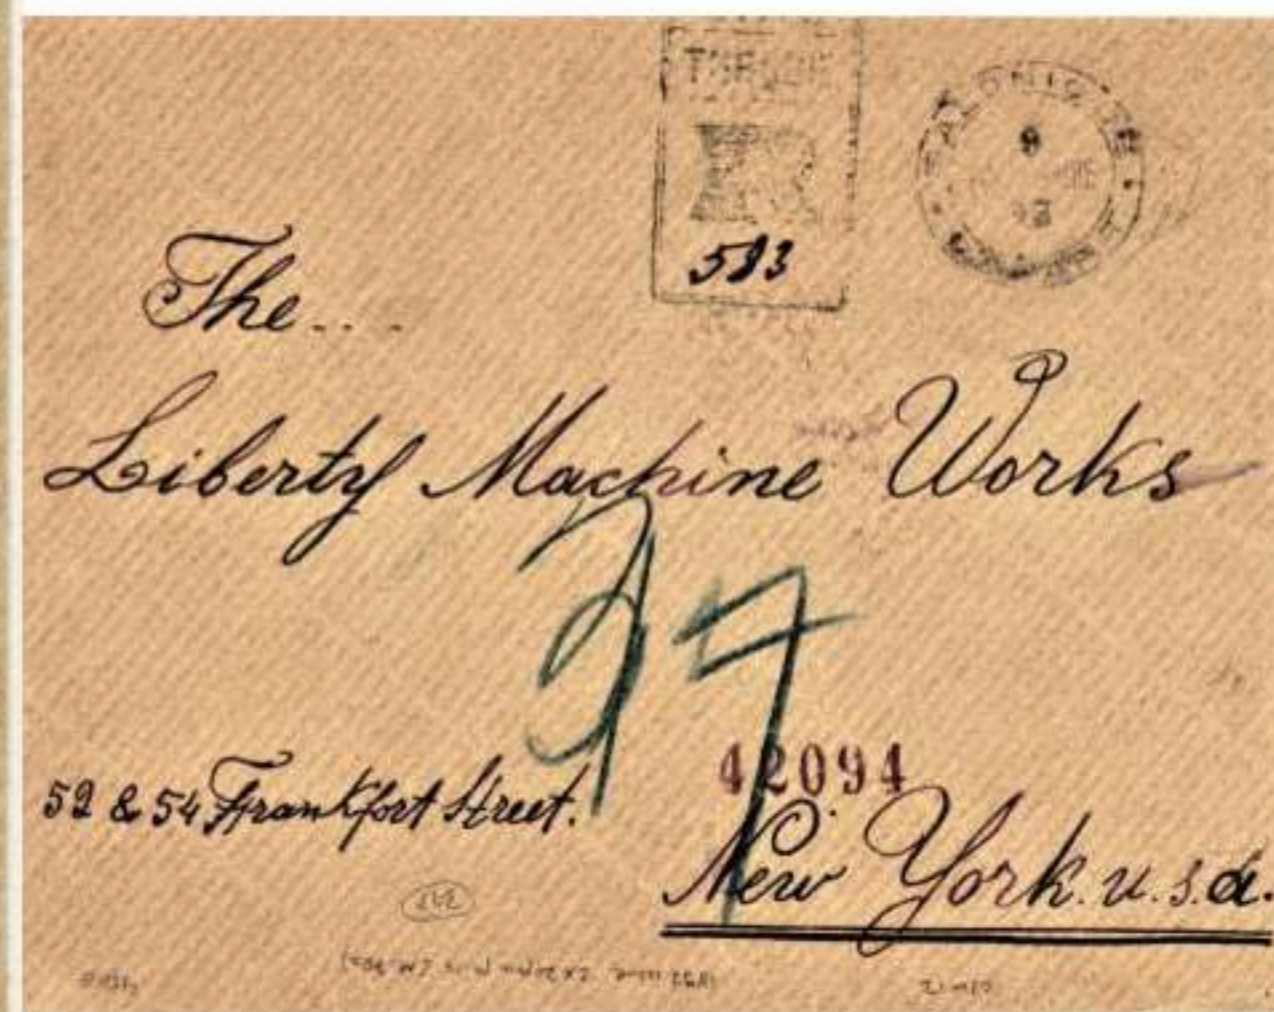 R
583
SALONIQUE
9
93
The....
Liberty Machine Works
37
42094
52 & 54 Frankfort Street.
New York. U.S.A.